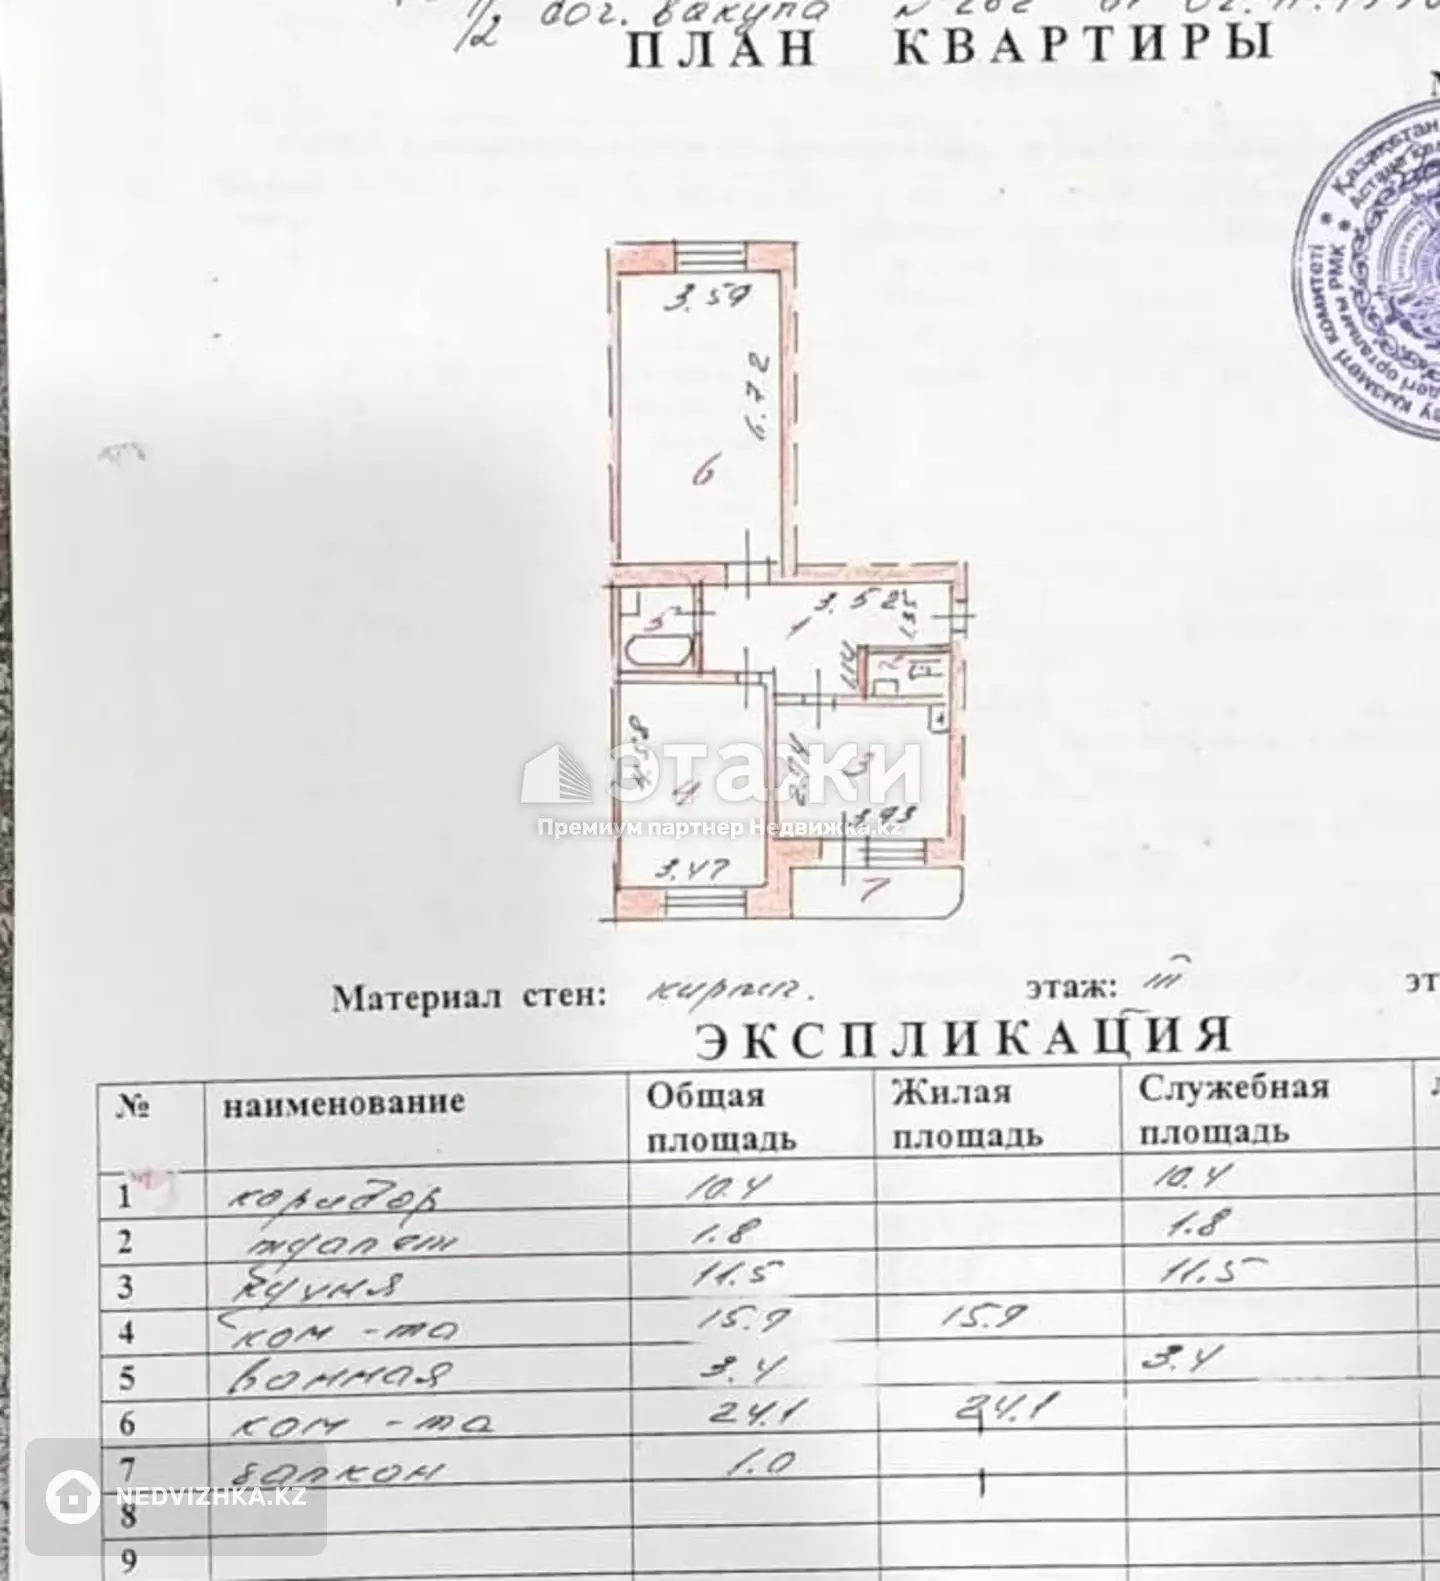 1/2 дог. выкупа № 262 от 02.11.199
ПЛАН КВАРТИРЫ
Қазақстан
3.59
6.72
6
3.52
1.35
1
5
1.14
2
4.58
4
3.47
2.94
3
3.93
7
этажи
Премиум партнер Недвижка.kz
Материал стен: кирпич. этаж: III эт
ЭКСПЛИКАЦИЯ
№ наименование Общая площадь Жилая площадь Служебная площадь
1 коридор 10.4 10.4
2 туалет 1.8 1.8
3 кухня 11.5 11.5
4 ком-та 15.9 15.9
5 ванная 3.4 3.4
6 ком-та 24.1 24.1
7 балкон 1.0
8
9
NEDVIZHKA.KZ